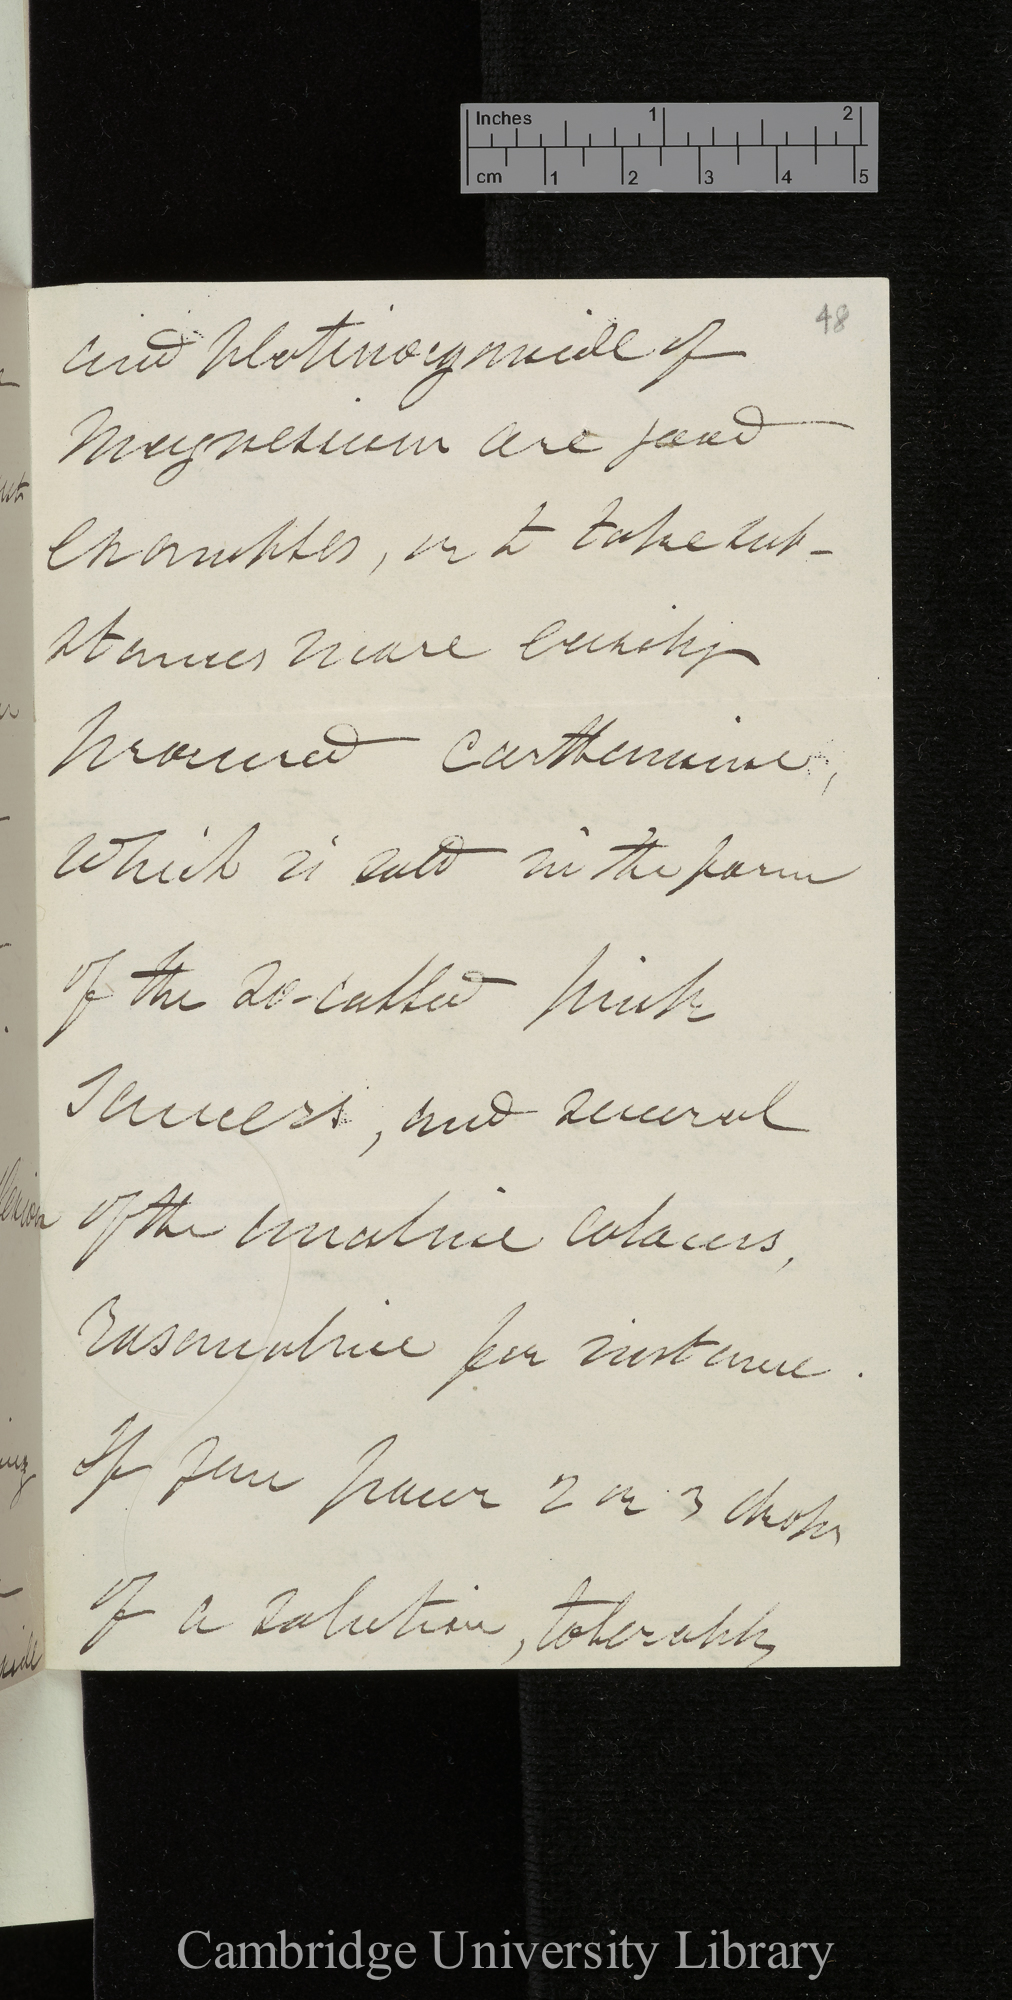 Inches 1 2
cm 1 2 3 4 5
48
and platinocyanide of
Magnesium are good
examples, or to take sub-
stances more easily
procured Carthamine,
which is sold in the form
of the so-called pink
saucers, and several
of the aniline colours,
Rosaniline for instance.
If you pour 2 or 3 drops
of a solution, tolerably
Cambridge University Library